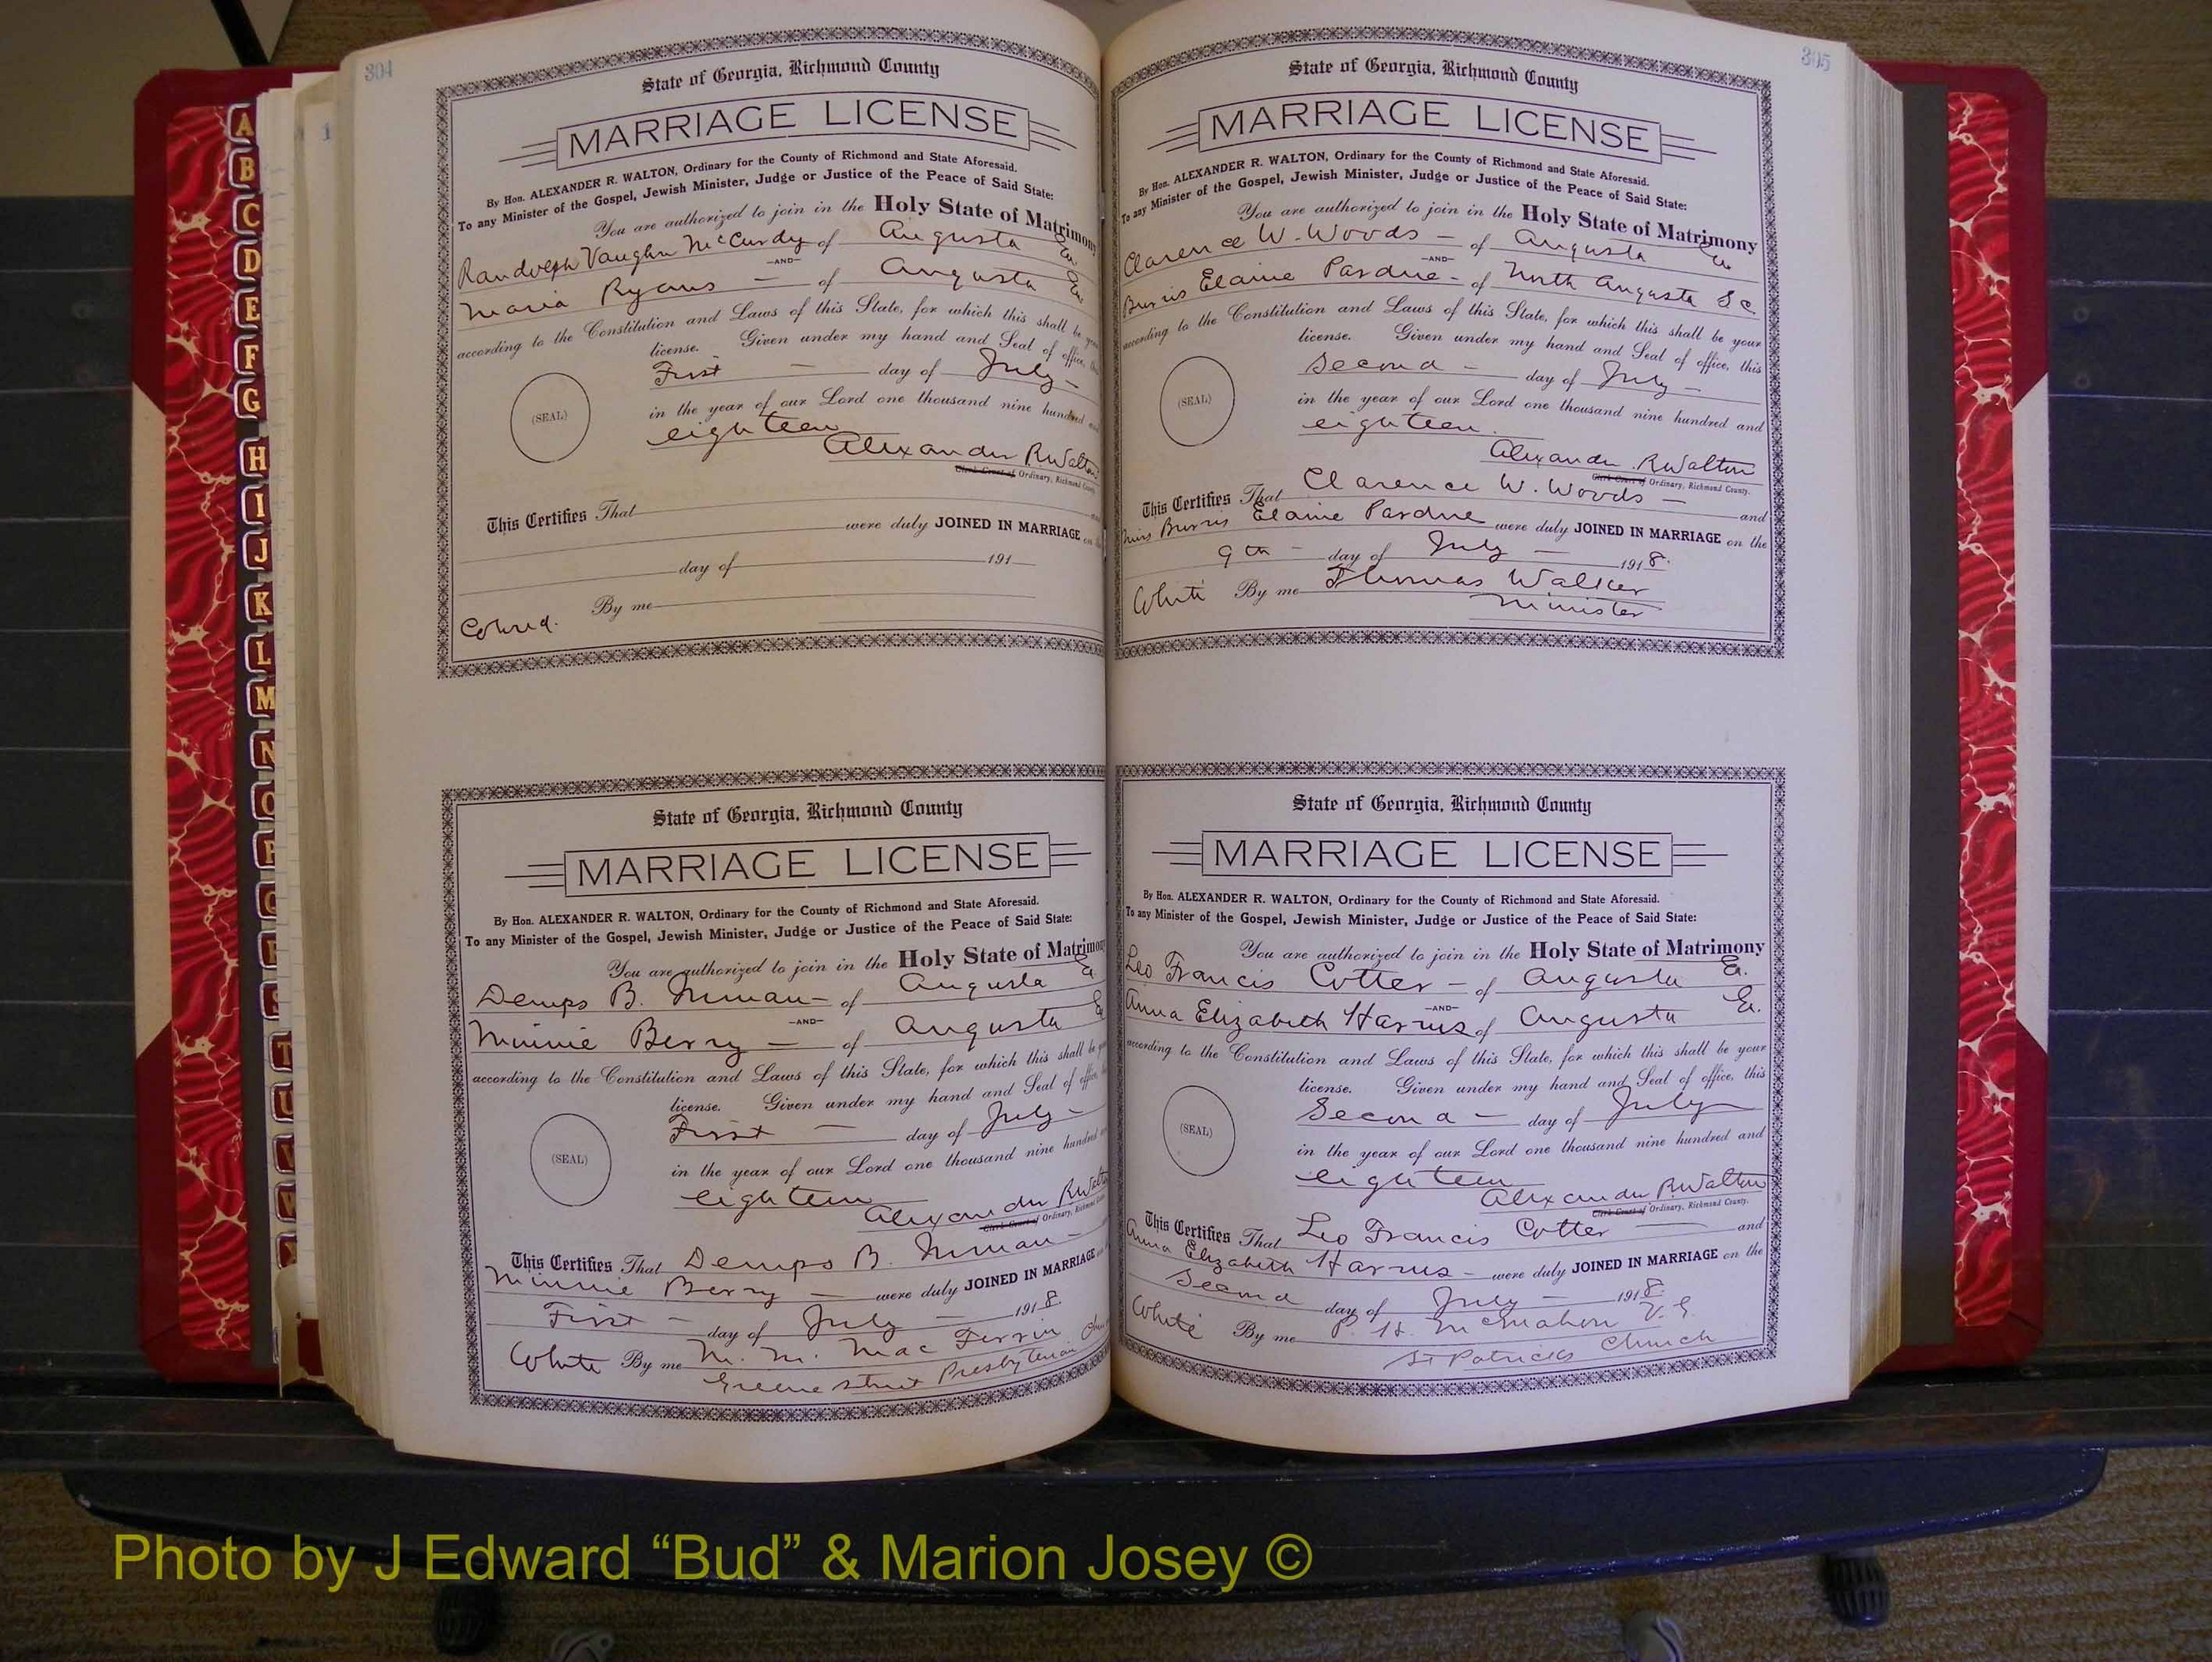 304
State of Georgia, Richmond County
MARRIAGE LICENSE
By Hon. ALEXANDER R. WALTON, Ordinary for the County of Richmond and State Aforesaid.
To any Minister of the Gospel, Jewish Minister, Judge or Justice of the Peace of Said State:
You are authorized to join in the Holy State of Matrimony
Randolph Vaughn McCurdy of Augusta Ga.
—AND—
Maria Ryans — of Augusta Ga.
according to the Constitution and Laws of this State, for which this shall be your
license. Given under my hand and Seal of office, this
First — day of July —
(SEAL)
in the year of our Lord one thousand nine hundred and
eighteen
Alexander R Walton
Clerk Court of Ordinary, Richmond County.
This Certifies That and
were duly JOINED IN MARRIAGE on the
day of 191
By me
Colored.
State of Georgia, Richmond County
MARRIAGE LICENSE
By Hon. ALEXANDER R. WALTON, Ordinary for the County of Richmond and State Aforesaid.
To any Minister of the Gospel, Jewish Minister, Judge or Justice of the Peace of Said State:
You are authorized to join in the Holy State of Matrimony
Demps B. Inman — of Augusta Ga.
—AND—
Minnie Berry — of Augusta Ga
according to the Constitution and Laws of this State, for which this shall be your
license. Given under my hand and Seal of office, this
First — day of July —
(SEAL)
in the year of our Lord one thousand nine hundred and
eighteen
Alexander R Walton
Clerk Court of Ordinary, Richmond County
This Certifies That Demps B. Inman —
Minnie Berry — were duly JOINED IN MARRIAGE on
First — day of July — 1918.
White By me M. M. Mac Ferrin
Greene Street Presbyterian
305
State of Georgia, Richmond County
MARRIAGE LICENSE
By Hon. ALEXANDER R. WALTON, Ordinary for the County of Richmond and State Aforesaid.
To any Minister of the Gospel, Jewish Minister, Judge or Justice of the Peace of Said State:
You are authorized to join in the Holy State of Matrimony
Clarence W. Woods — of Augusta Ga
—AND—
Burris Elaine Pardue - of North Augusta S C.
according to the Constitution and Laws of this State, for which this shall be your
license. Given under my hand and Seal of office, this
Second — day of July —
(SEAL)
in the year of our Lord one thousand nine hundred and
eighteen.
Alexander R Walton
Clerk Court of Ordinary, Richmond County.
This Certifies That Clarence W. Woods — and
Miss Burris Elaine Pardue were duly JOINED IN MARRIAGE on the
9th — day of July — 1918.
White By me Thomas Walker
Minister
State of Georgia, Richmond County
MARRIAGE LICENSE
By Hon. ALEXANDER R. WALTON, Ordinary for the County of Richmond and State Aforesaid.
To any Minister of the Gospel, Jewish Minister, Judge or Justice of the Peace of Said State:
You are authorized to join in the Holy State of Matrimony
Leo Francis Cotter — of Augusta Ga.
—AND—
Anna Elizabeth Harris of Augusta Ga.
according to the Constitution and Laws of this State, for which this shall be your
license. Given under my hand and Seal of office, this
Second — day of July
(SEAL)
in the year of our Lord one thousand nine hundred and
eighteen
Alexander R Walton
Clerk Court of Ordinary, Richmond County.
This Certifies That Leo Francis Cotter — and
Anna Elizabeth Harris — were duly JOINED IN MARRIAGE on the
Second day of July — 1918.
White By me P. H. McMahon V. G.
St Patricks Church
A
B
C
D
E
F
G
H
I
J
K
L
M
N
O
P
Q
R
S
T
U
V
W
Photo by J Edward “Bud” & Marion Josey ©